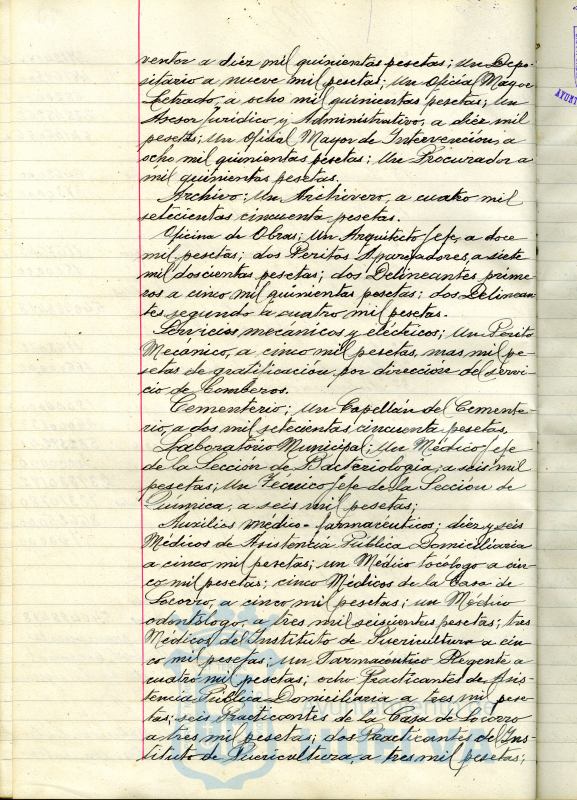 ventor a diéz mil quinientas pesetas; un Depo-
sitario a nueve mil pesetas; un Oficial Mayor
Letrado, a ocho mil quinientas pesetas; un
Asesor Jurídico y Administrativo, a diéz mil
pesetas; un Oficial Mayor de Intervención, a
ocho mil quinientas pesetas; un Procurador a
mil quinientas pesetas.
Archivo; un Archivero, a cuatro mil
setecientas cincuenta pesetas.
Oficina de Obras; un Arquitecto Jefe, a doce
mil pesetas; dos Peritos Aparejadores, a siete
mil doscientas pesetas; dos Delineantes prime-
ros a cinco mil quinientas pesetas; dos Delinean-
tes segundo a cuatro mil pesetas.
Servicios mecánicos y eléctricos; un Perito
Mecánico, a cinco mil pesetas, mas mil pe-
setas de gratificación por dirección del servi-
cio de Bomberos.
Cementerio; un Capellán del Cemente-
rio, a dos mil setecientas cincuenta pesetas.
Laboratorio Municipal; un Médico Jefe
de la Sección de Bacteriología, a seis mil
pesetas; un Técnico Jefe de la Sección de
Química, a seis mil pesetas;
Auxilios médico-farmacéuticos; diéz y seis
Médicos de Asistencia Pública Domiciliaria
a cinco mil pesetas; un Médico tocólogo a cin-
co mil pesetas; cinco Médicos de la Casa de
Socorro, a cinco mil pesetas; un Médico
odontólogo, a tres mil seiscientas pesetas; tres
Médicos del Instituto de Puericultura a cin-
co mil pesetas; un Farmacéutico Regente a
cuatro mil pesetas; ocho Practicantes de Asis-
tencia Pública Domiciliaria a tres mil pese-
tas; seis Practicantes de la Casa de Socorro
a tres mil pesetas; dos Practicantes del Ins-
tituto de Puericultura, a tres mil pesetas;
Ayuntamiento de
HUELVA